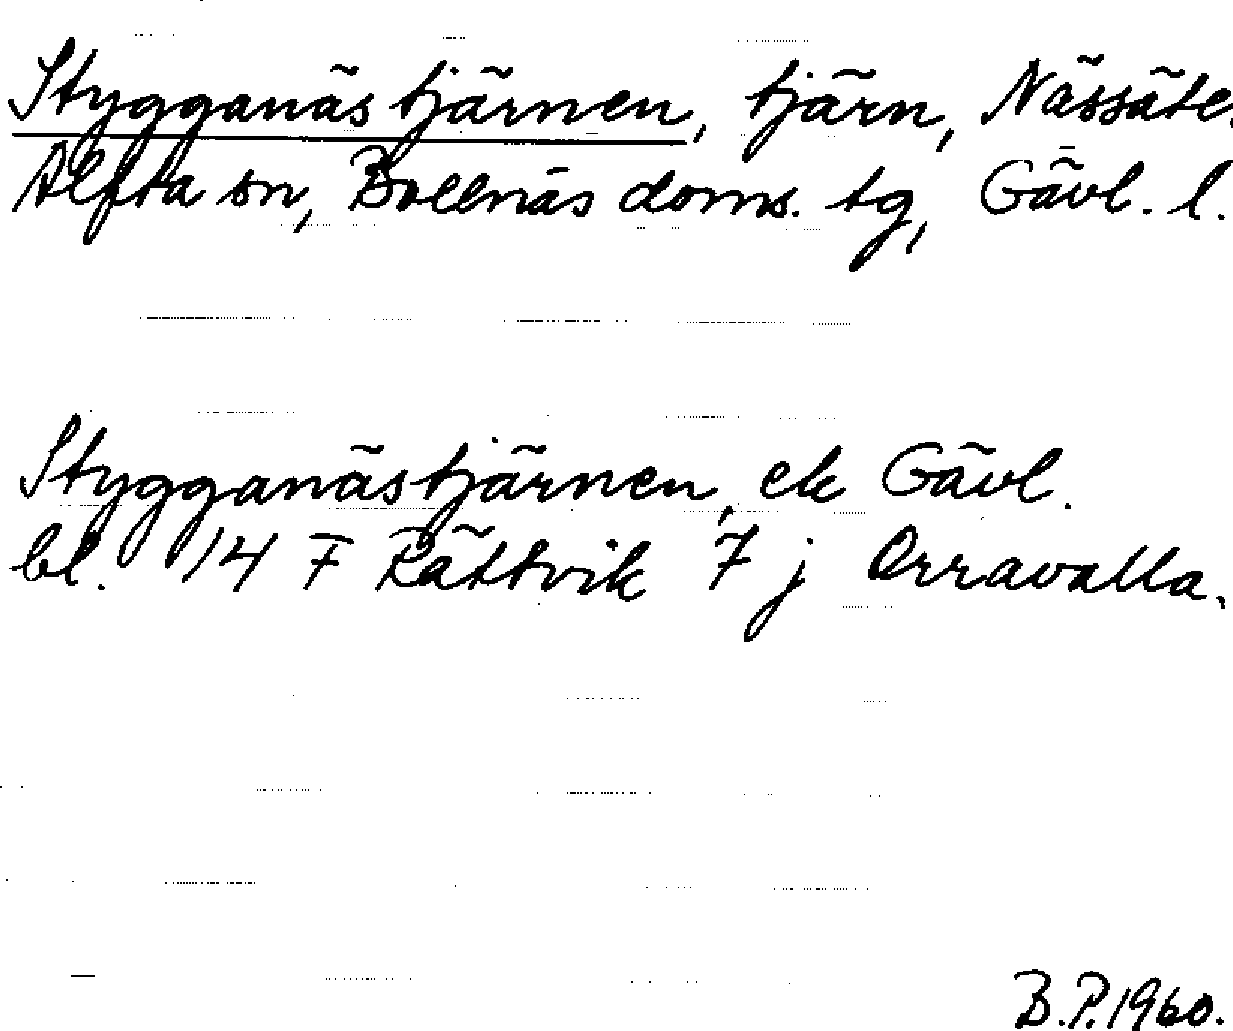 Stygganästjärnen, tjärn, Nässäte.
Alfta sn, Bollnäs doms. tg, Gävl. l.
Stygganästjärnen, ek Gävl.
bl. 14 F Rättvik 7 j Orravalla.
B.P. 1960.